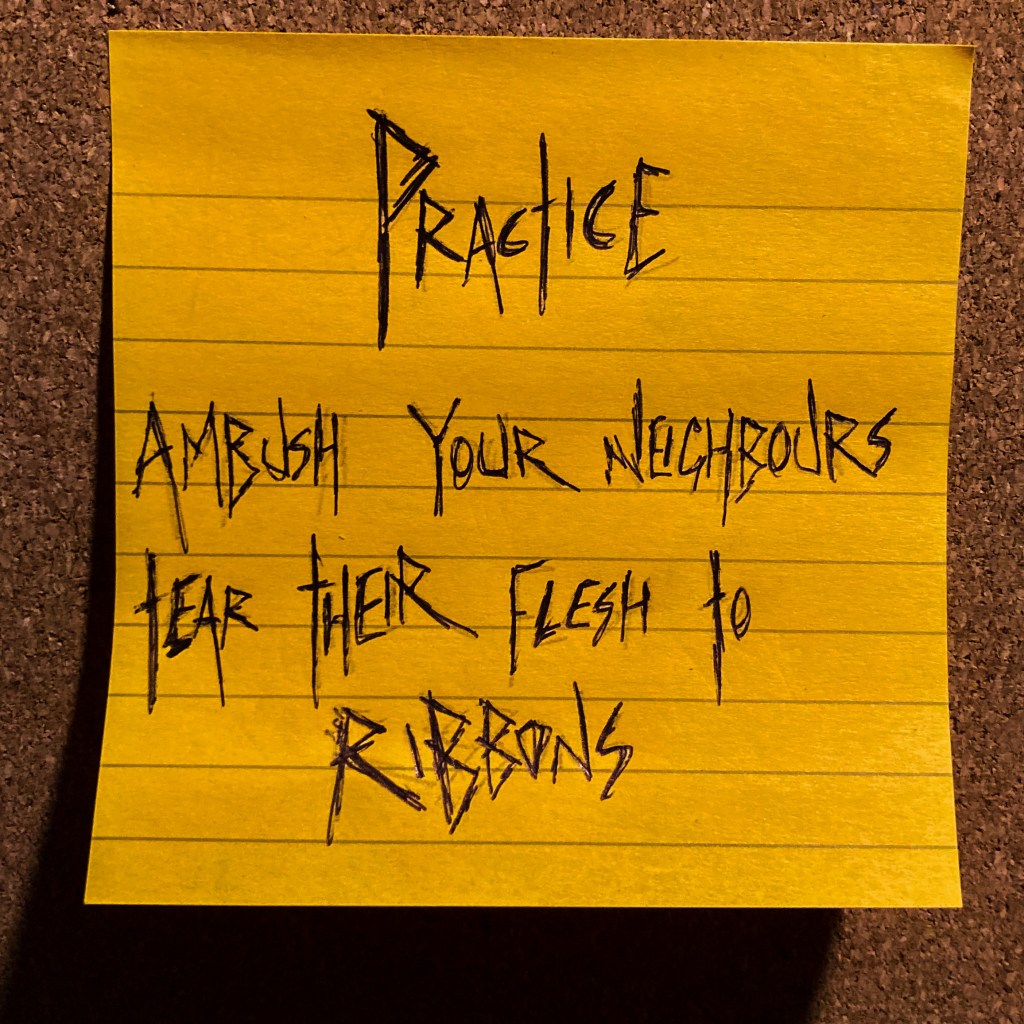 PRACTICE
AMBUSH YOUR NEIGHBOURS
TEAR THEIR FLESH TO
RIBBONS